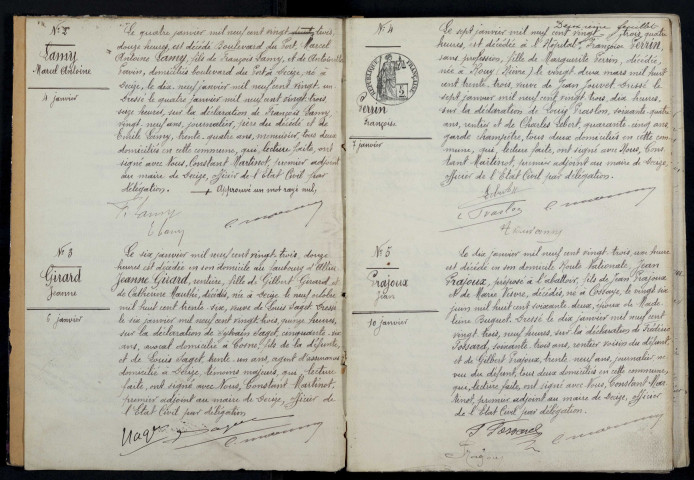 N° 2
Lamy
Marcel Antoine
4 janvier
Le quatre janvier mil neuf cent vingt trois,
douze heures, est décédé Boulevard du Port, Marcel
Antoine Lamy, fils de François Lamy, et de
domiciliés boulevard du Port à Decize, né à
Decize, le dix, neuf janvier mil neuf cent vingt. un
Dressé le quatre janvier mil neuf cent vingt trois,
seize heures, sur la déclaration de François Lamy
vingt neuf ans, journalier, père du décédé et de
Emile Lamy, trente. quatre ans, menuisier, tous deux
domiciliés en cette commune, qui, lecture faite, ont
signé avec Nous, Constant Martinot, premier adjoint
au maire de Decize, officier de l'Etat Civil par
délégation. Approuvé un mot rayé nul,
F. Lamy
E Lamy
N° 3
Girard
Jeanne
6 janvier
Le six janvier mil neuf cent vingt. trois, douze
heures est décédée en son domicile au faubourg d'Allier
Jeanne Girard, rentière, fille de Gilbert Girard et
de Catherine Gauthé, décédés, née à Decize le neuf octobre
mil huit cent trente. six, veuve de Louis Saget Dressé
le six janvier mil neuf cent vingt-trois, heures,
sur la déclaration de Saget, cinquante. six
ans, avocat domicilié à Cosne, fils de la défunte
et de Louis Saget, trente. un ans, agent d'assurances
domicilié à Decize, témoins majeurs, qui, lecture
faite, ont signé avec Nous, Constant Martinot,
premier adjoint au maire de Decize, officier de
l'Etat Civil par délégation.
Saget
Deuxième feuillet
N° 4
REPUBLIQUE FRANÇAISE
Perrin
Françoise
7 janvier
Le sept janvier mil neuf cent vingt-trois, quatre
heures, est décédée à l'Hôpital, Françoise Perrin,
sans profession, fille de Marguerite Perrin, décédée,
née à Rouy (Nièvre) le vingt deux mars mil huit
cent trente. trois, veuve de Jean Jouvet. Dressé le
sept janvier mil neuf cent vingt trois, dix heures,
sur la déclaration de Louis Traslon, soixante. quatre
ans, rentier et de Charles Lebet, quarante cinq ans
garde champêtre, tous deux domiciliés en cette com-
mune, qui, lecture faite, ont signé avec Nous, Cons-
tant Martinot, premier adjoint au maire de Decize,
officier de l'Etat Civil par délégation.
N° 5
Prajoux
Jean
10 janvier
Le dix janvier mil neuf cent vingt. trois, une heure
est décédé en son domicile Route Nationale, Jean
Prajoux, préposé à l'abattoir, fils de Jean Prajoux
& de Marie Tisvre, décédés, né à Cossaye, le vingt six
juin mil huit cent soixante. deux, époux de Made-
leine Dressé le dix janvier mil neuf cent
vingt trois, neuf heures, sur la déclaration de Frédéric
Possard, soixante. trois ans, rentier voisin du défunt,
et de Gilbert Prajoux, trente neuf ans, journalier ne-
veu du défunt, tous deux domiciliés en cette commune,
qui, lecture faite, ont signé avec Nous, Constant Mar-
tinot, premier adjoint au maire de Decize, officier
de l'Etat Civil par délégation.
F. Possard